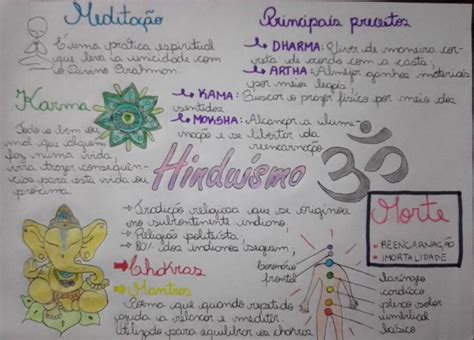 Meditação
É uma prática espiritual
que leva la unicidade com
o Divino Brahman.
Principais preceitos
DHARMA: Viver de maneira cor-
reta de acordo com a casta;
ARTHA: Almejar ganhos materiais
por meios legais;
KAMA: Buscar o prazer físico por meio dos
sentidos
MOKSHA: Alcançar a ilumi-
nação e se libertar da
reencarnação.
Karma
Todo o bem ou
mal que alguém
faz numa vida,
virá trazer consequên-
cias para esta vida ou
próxima.
Hinduísmo
ॐ
Tradição religiosa que se originou
no subcontinente indiano
Religião politeísta.
80% dos indianos seguem;
Chakras
Mantras
Forma que quando repetida
ajuda a relaxar e meditar
Utilizado para equilibrar os chakras
Morte
REENCARNAÇÃO
IMORTALIDADE
coronário
frontal
laríngeo
cardíaco
plexo solar
umbilical
básico